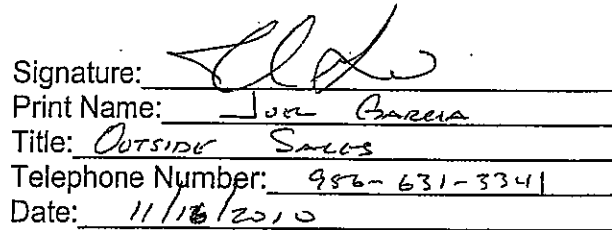 Signature:
Print Name: Joel Garcia
Title: Outside Sales
Telephone Number: 956-631-3341
Date: 11/16/2010